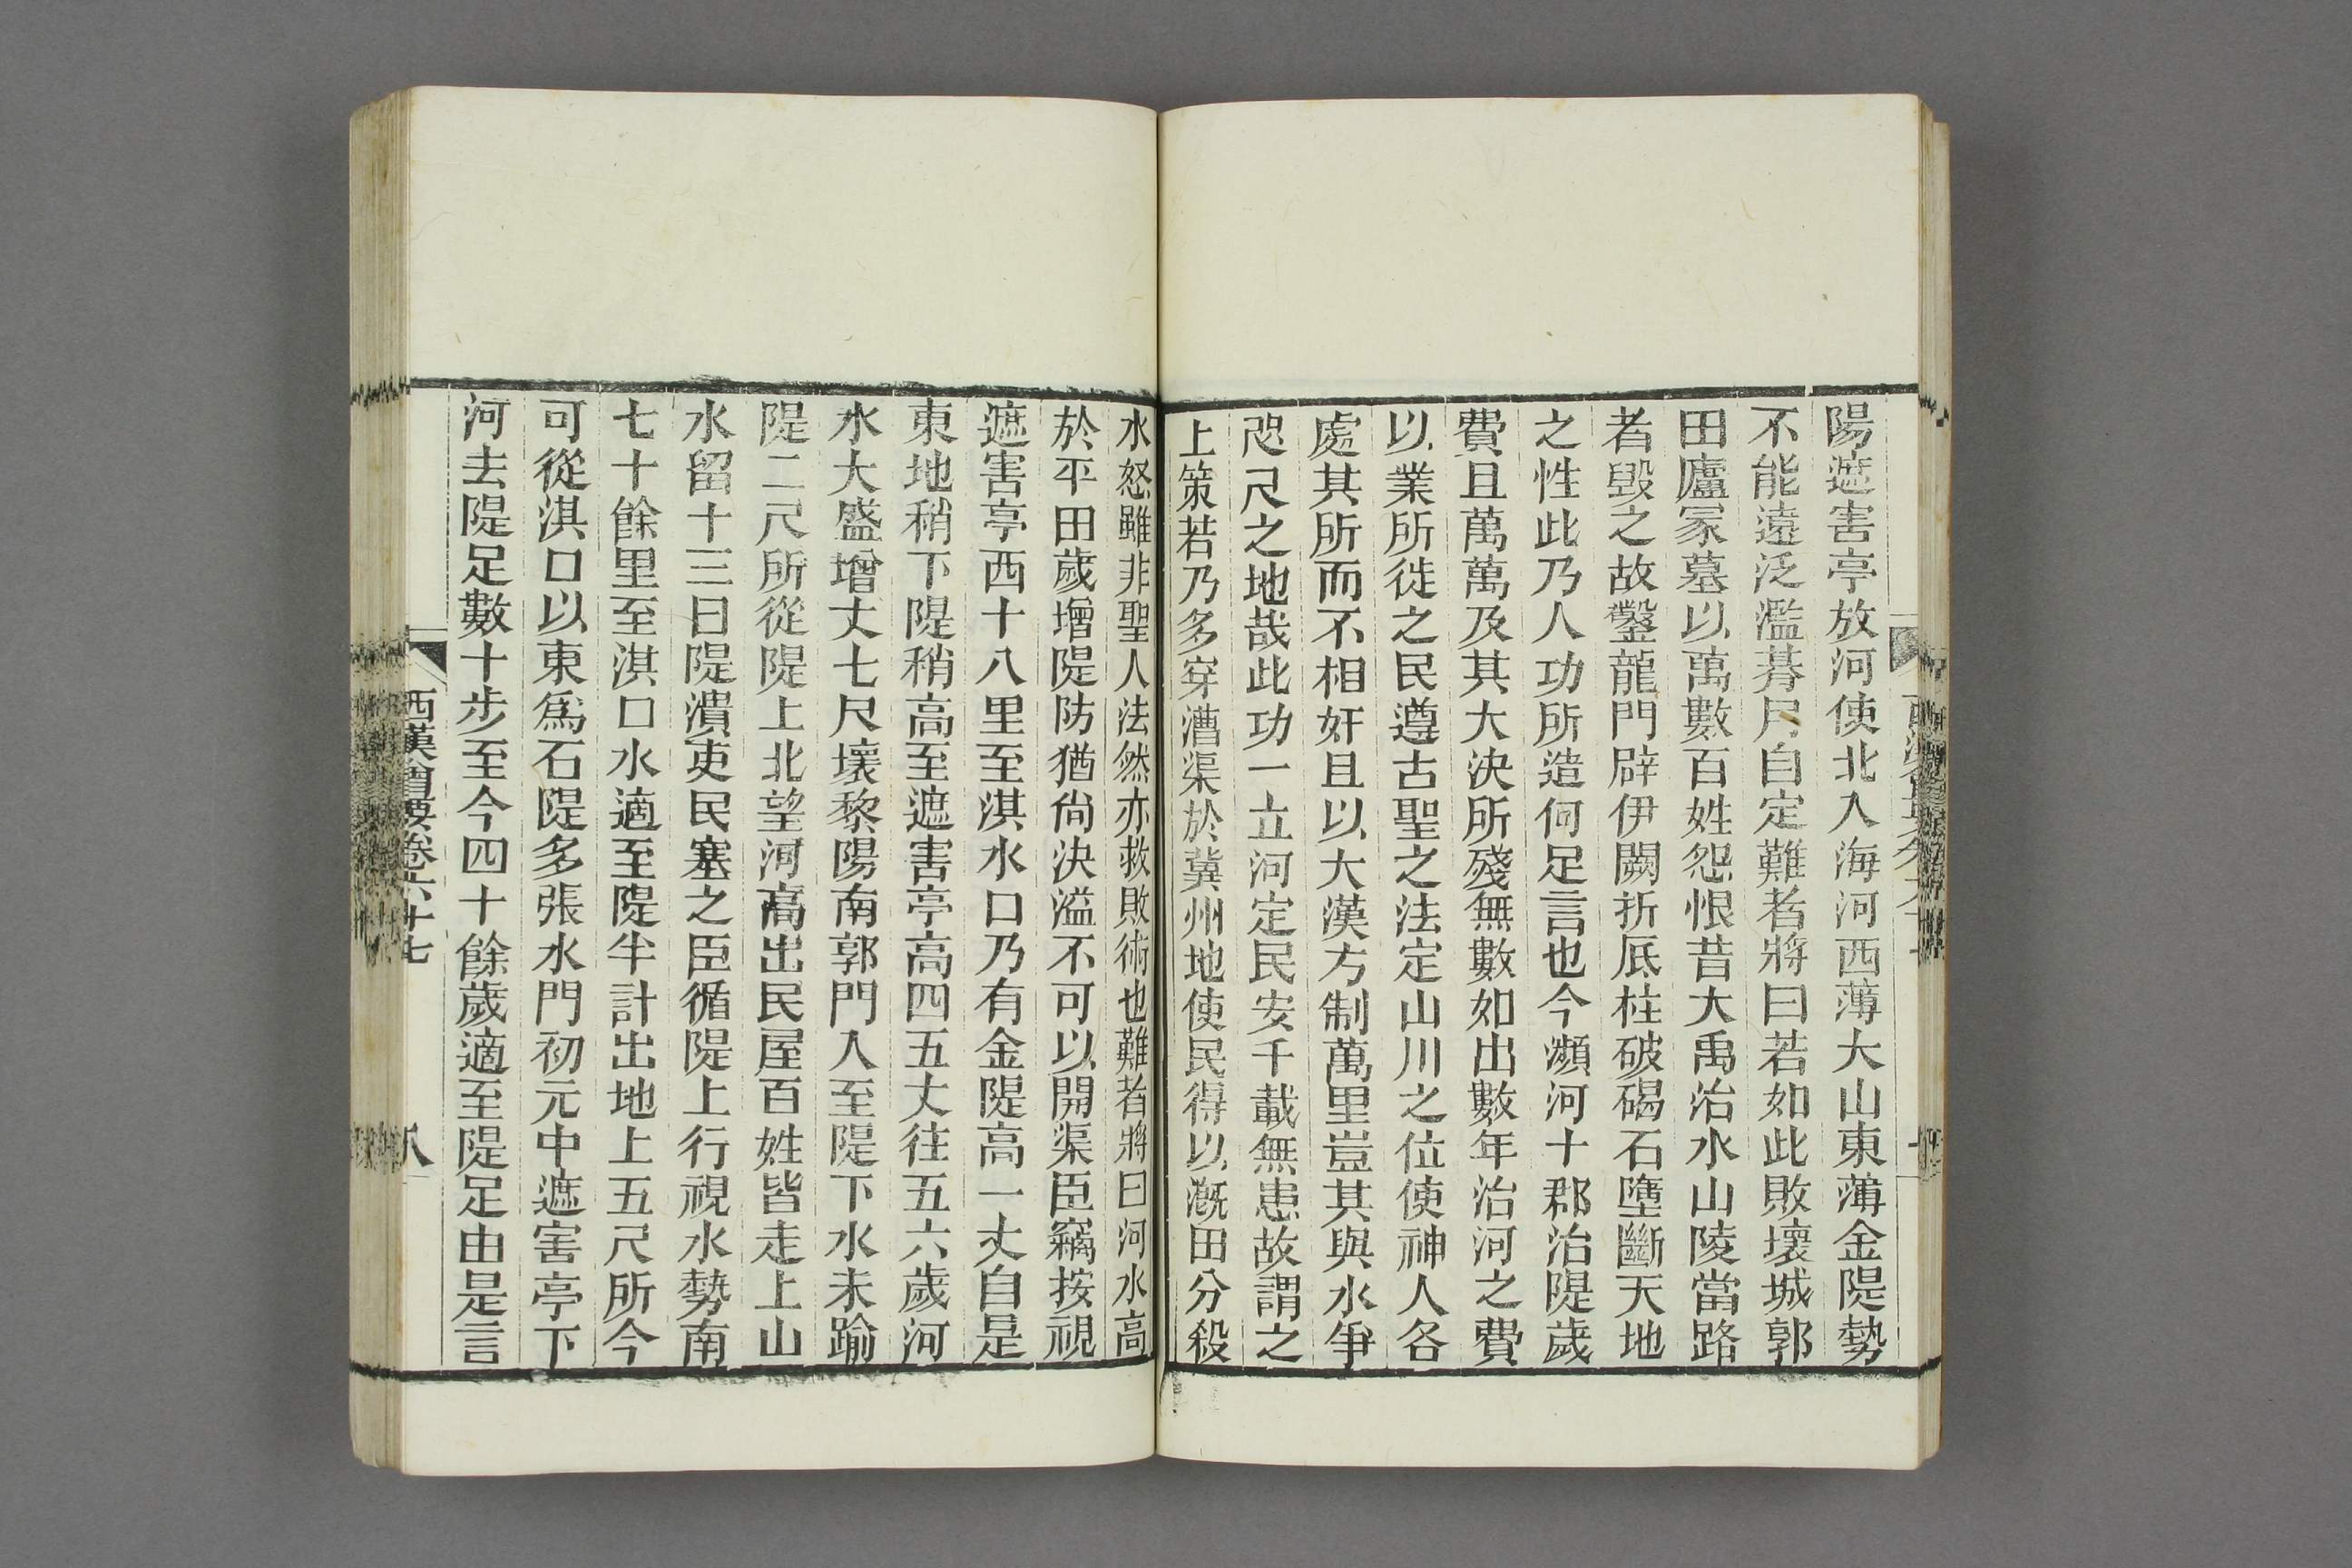 陽遮害亭放河使北入海河西薄大山東薄金隄勢
不能遠泛濫朞月自定難者將曰若如此敗壞城郭
田廬冢墓以萬數百姓怨恨昔大禹治水山陵當路
者毁之故鑿龍門辟伊闕折厎柱破碣石墮斷天地
之性此乃人功所造何足言也今瀕河十郡治隄歲
費且萬萬及其大決所殘無數如出數年治河之費
以業所徙之民遵古聖之法定山川之位使神人各
處其所而不相奸且以大漢方制萬里豈其與水爭
咫尺之地哉此功一立河定民安千載無患故謂之
上策若乃多穿漕渠於冀州地使民得以漑田分殺
水怒雖非聖人法然亦救敗術也難者將曰河水高
於平田歲增隄防猶尚決溢不可以開渠臣竊按視
遮害亭西十八里至淇水口乃有金隄高一丈自是
東地稍下隄稍高至遮害亭高四五丈往五六歲河
水大盛增丈七尺壞黎陽南郭門入至隄下水未踰
隄二尺所從隄上北望河高出民屋百姓皆走上山
水留十三日隄潰吏民塞之臣循隄上行視水勢南
七十餘里至淇口水適至隄半計出地上五尺所今
可從淇口以東爲石隄多張水門初元中遮害亭下
河去隄足數十步至今四十餘歲適至隄足由是言
西漢會要卷六十七
八